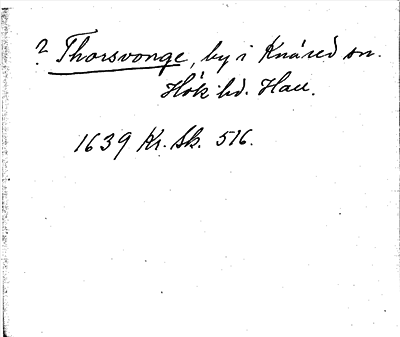 ? Thorsvonge, by i Knäred sn.
Hök hd. Hall.
1639 Kr. Sk. 516.